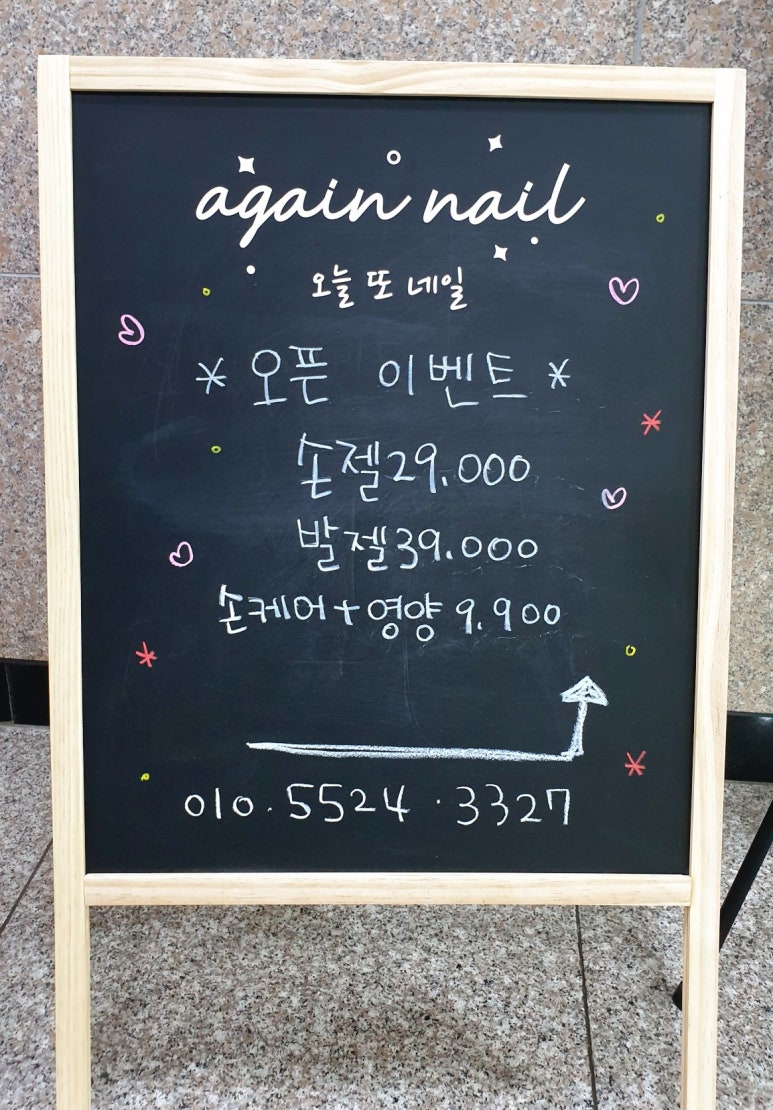 again nail
오늘 또 네일
* 오픈 이벤트 *
손젤 29.000
발젤 39.000
손케어+영양 9.900
010.5524.3327